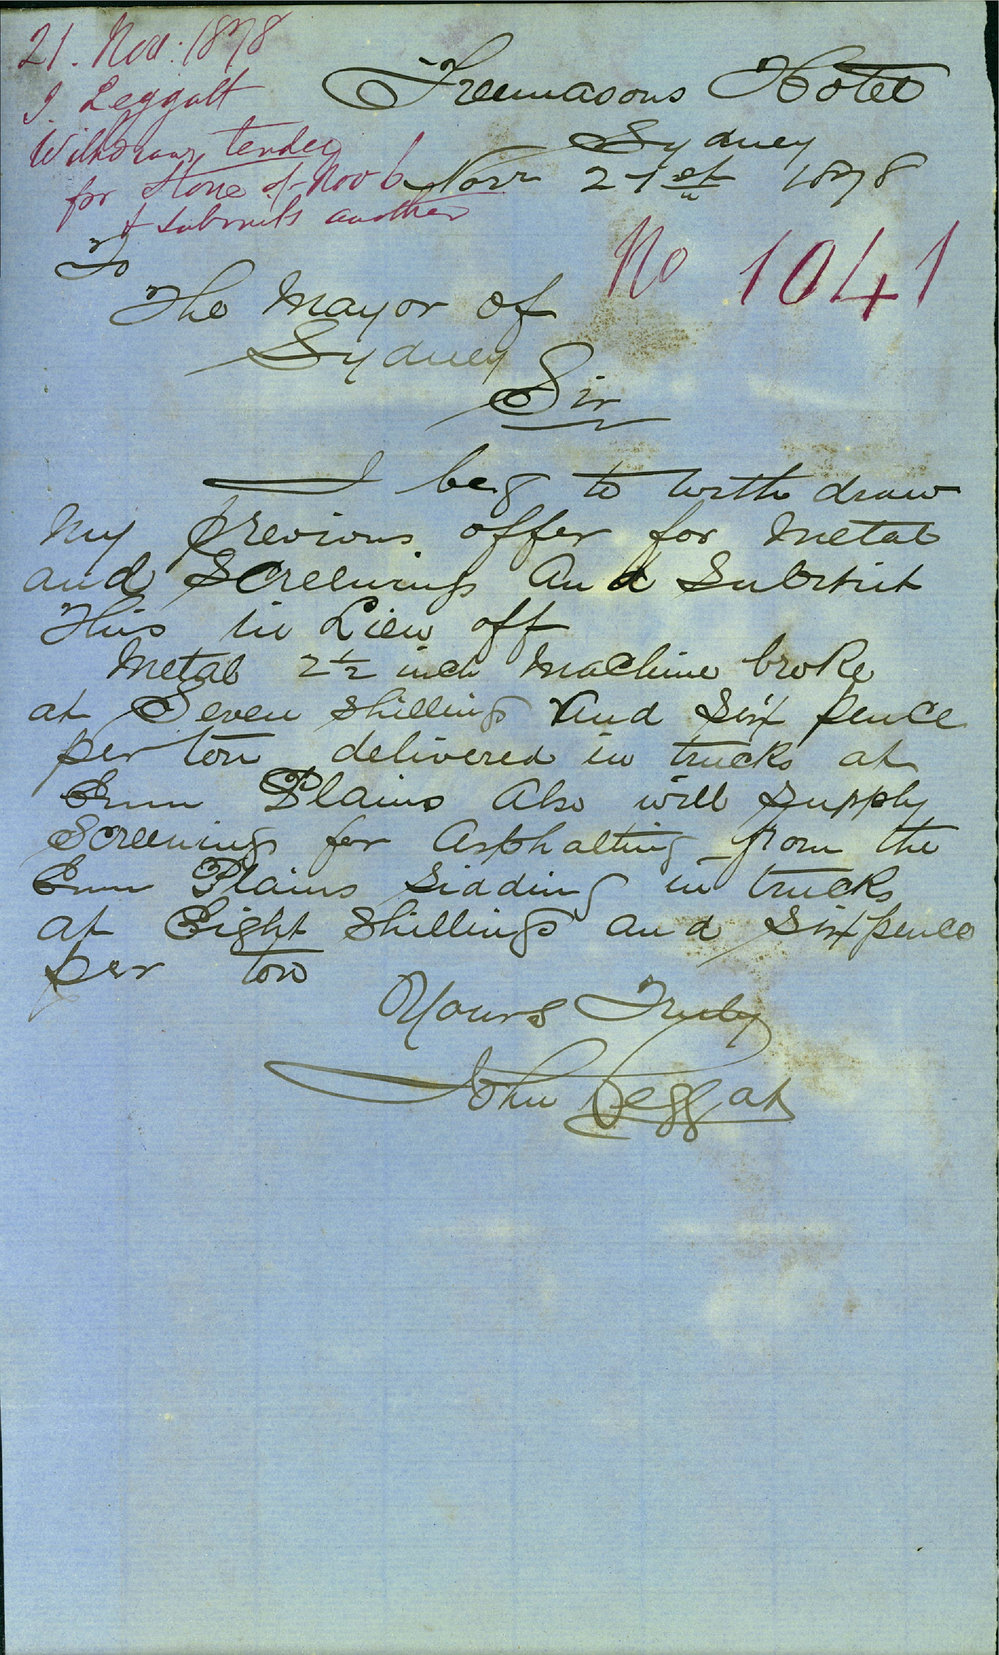 21. Nov: 1878
J. Leggatt
Withdraws tender
for Stone of Nov 6
& submits another
Freemasons Hotel
Sydney
Novr 21st 1878
No 1041
To
The Mayor of
Sydney
Sir
I beg to with draw
My previous offer for Metal
and Screenings And Substit
This in Lieu off
Metal 2½ inch Machine broke
at Seven Shillings And Six pence
per ton delivered in trucks at
Emu Plains Also will Supply
Screenings for Asphalting from the
Emu Plains Sidding in trucks
at Eight Shillings and Sixpence
per ton
Yours Truly
John Leggat